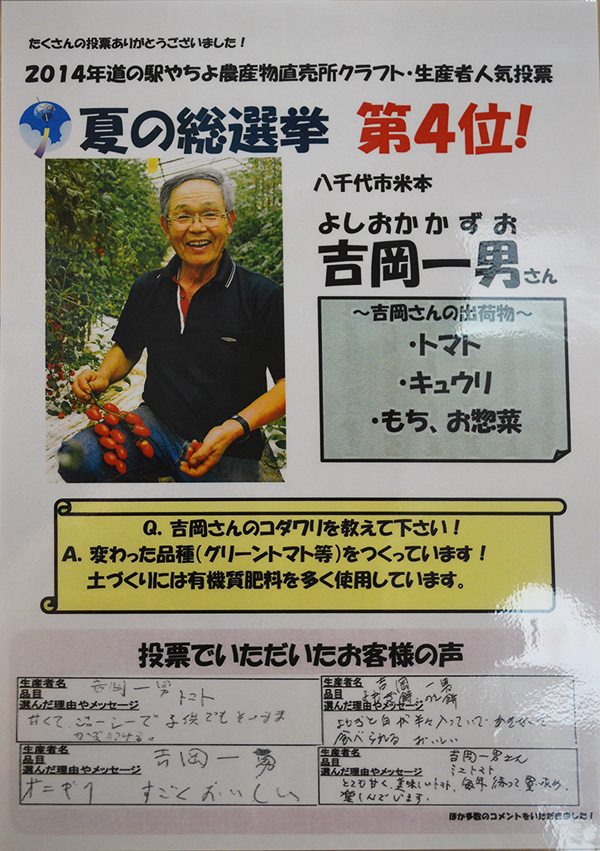 たくさんの投票ありがとうございました!
2014年道の駅やちよ農産物直売所クラフト・生産者人気投票
夏の総選挙 第4位!
八千代市米本
よしおかかずお
吉岡一男さん
~吉岡さんの出荷物~
・トマト
・キュウリ
・もち、お惣菜
Q. 吉岡さんのコダワリを教えて下さい!
A. 変わった品種(グリーントマト等)をつくっています!
土づくりには有機質肥料を多く使用しています。
投票でいただいたお客様の声
生産者名 吉岡一男
品目 トマト
選んだ理由やメッセージ
甘くて、ジューシーで子供でもそのまま
生産者名 吉岡一男
品目
選んだ理由やメッセージ
食べられる おいしい
生産者名 吉岡一男
品目
選んだ理由やメッセージ
オニギリ すごくおいしい
生産者名 吉岡一男さん
品目 ミニトマト
選んだ理由やメッセージ
とても甘く、美味しいトマト、毎年待って買い求め、
楽しんでいます。
ほか多数のコメントをいただきました!